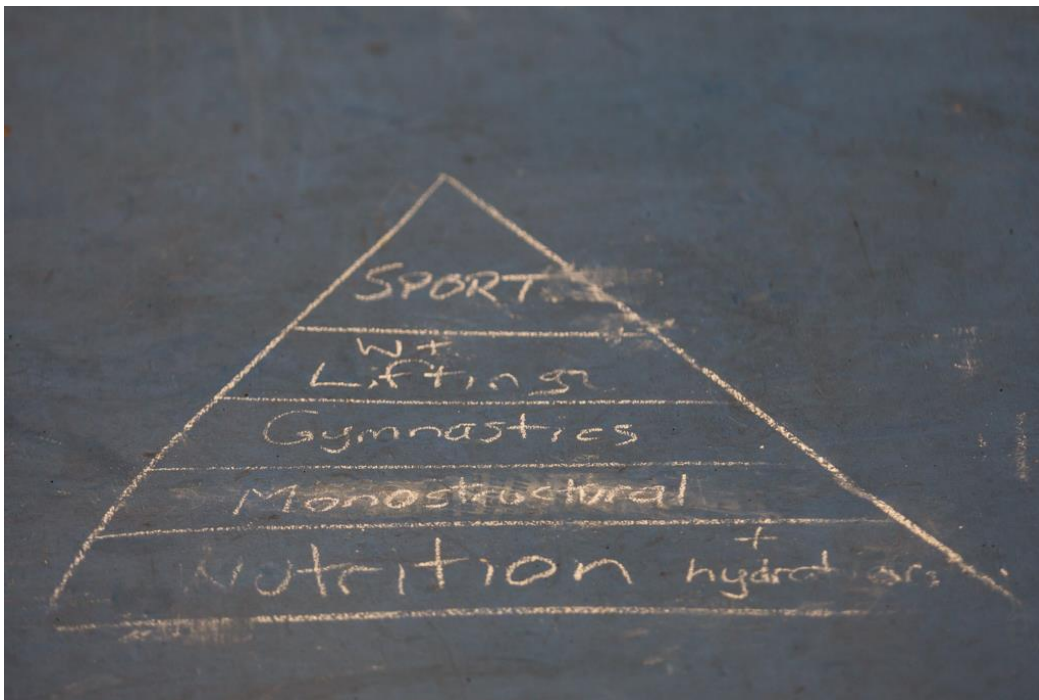 SPORT
Wt
Lifting
Gymnastics
Monostructural
Nutrition +